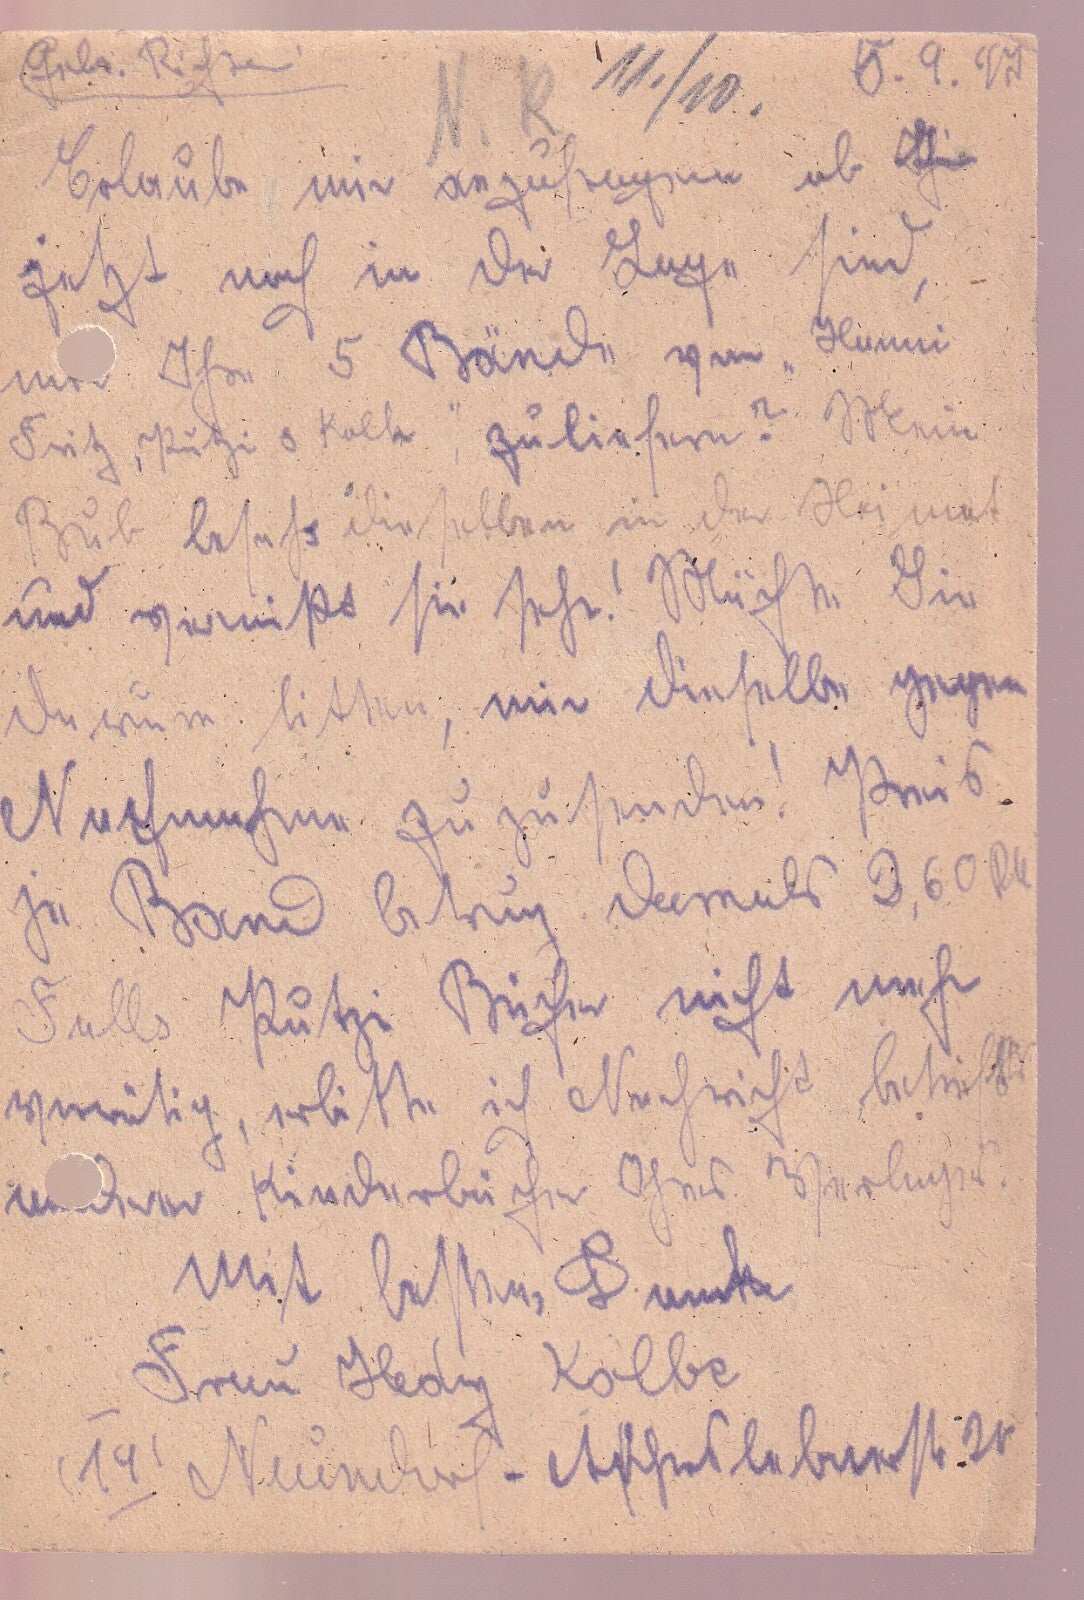 Gebr. Richter
N. R 11./10. 5. 9. 47
Erlaube mir anzufragen ob Sie
jetzt noch in der Lage sind,
mir Ihre 5 Bände von „Hanni
Fritz, Putzi &" zuliefern? Mein
Bub besaß dieselben in der Heimat
und vermißt sie sehr! Möchte Sie
darum bitten, mir dieselbe gegen
Nachnahme zuzusenden! Preis
je Band betrug damals 3,60 RM
Falls Putzi Bücher nicht mehr
vorrätig, erbitte ich Nachricht betreffs
anderer Kinderbücher Ihres Verlages.
Mit besten Dank
Frau Hedy Kolbe
(19) Neundorf - Aschersleberstr. 20